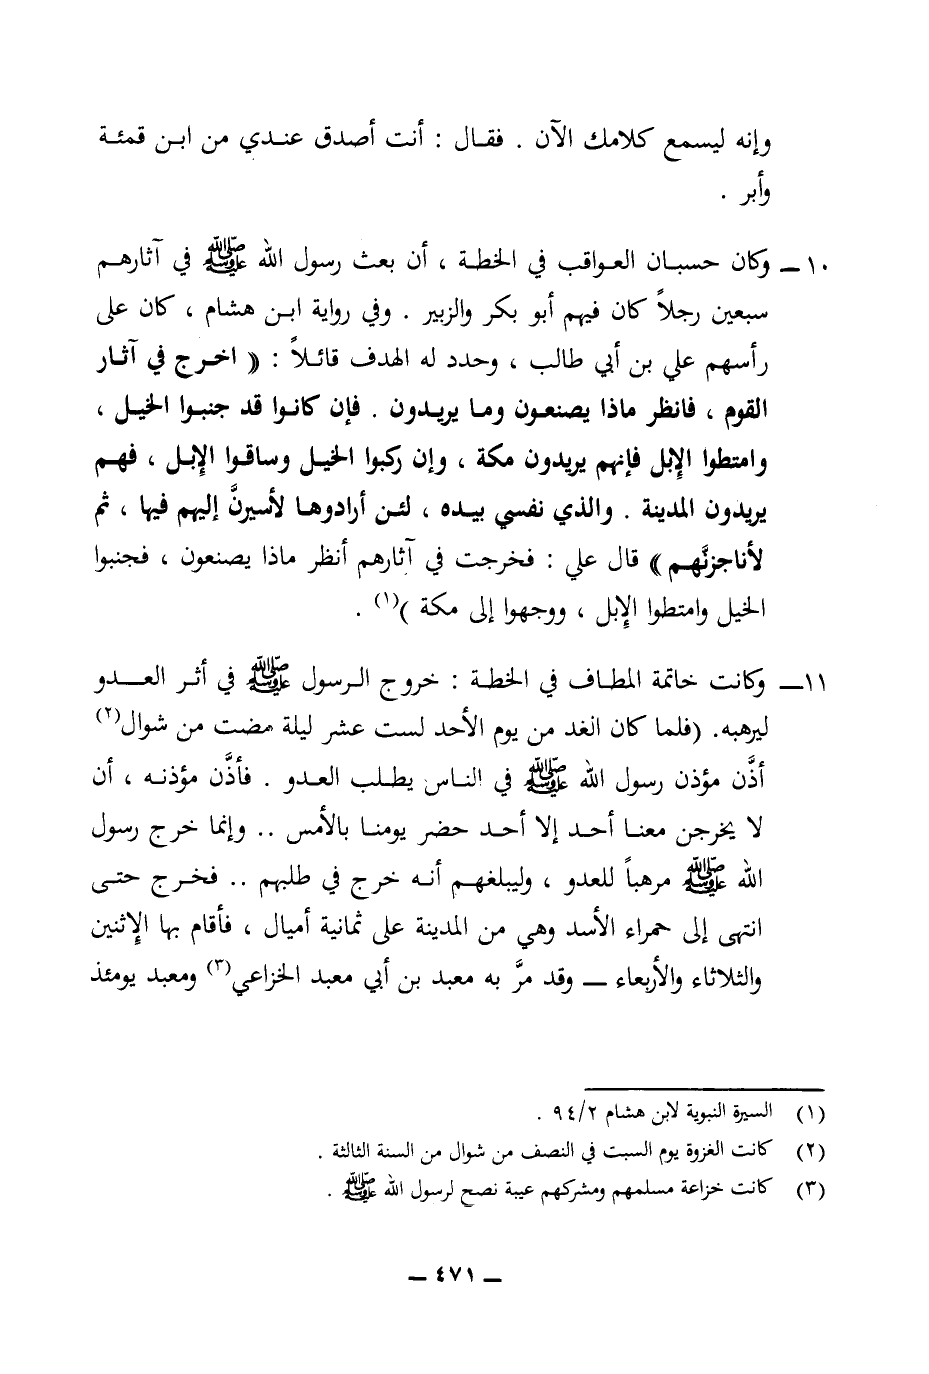 وإنه ليسمع كلامك الآن . فقال : أنت أصدق عندي من ابن قمئة
وأبر .
١٠ـ وكان حسبان العواقب في الخطة ، أن بعث رسول الله ﷺ في آثارهم
سبعين رجلاً كان فيهم أبو بكر والزبير . وفي رواية ابن هشام ، كان على
رأسهم علي بن أبي طالب ، وحدد له الهدف قائلاً : « اخرج في آثار
القوم ، فانظر ماذا يصنعون وما يريدون . فإن كانوا قد جنبوا الخيل ،
وامتطوا الإبل فإنهم يريدون مكة ، وإن ركبوا الخيل وساقوا الإبل ، فهم
يريدون المدينة . والذي نفسي بيده ، لئن أرادوها لأسيرنَّ إليهم فيها ، ثم
لأناجزنَّهم » قال علي : فخرجت في آثارهم أنظر ماذا يصنعون ، فجنبوا
الخيل وامتطوا الإبل ، ووجهوا إلى مكة )(١) .
١١ـ وكانت خاتمة المطاف في الخطة : خروج الرسول ﷺ في أثر العدو
ليرهبه. (فلما كان الغد من يوم الأحد لست عشر ليلة مضت من شوال(٢)
أذَّن مؤذن رسول الله ﷺ في الناس يطلب العدو . فأذَّن مؤذنه ، أن
لا يخرجن معنا أحد إلا أحد حضر يومنا بالأمس .. وإنما خرج رسول
الله ﷺ مرهباً للعدو ، وليبلغهم أنه خرج في طلبهم .. فخرج حتى
انتهى إلى حمراء الأسد وهي من المدينة على ثمانية أميال ، فأقام بها الإثنين
والثلاثاء والأربعاء ــ وقد مرَّ به معبد بن أبي معبد الخزاعي(٣) ومعبد يومئذ
(١) السيرة النبوية لابن هشام ٩٤/٢ .
(٢) كانت الغزوة يوم السبت في النصف من شوال من السنة الثالثة .
(٣) كانت خزاعة مسلمهم ومشركهم عيبة نصح لرسول الله ﷺ .
ــ ٤٧١ ــ